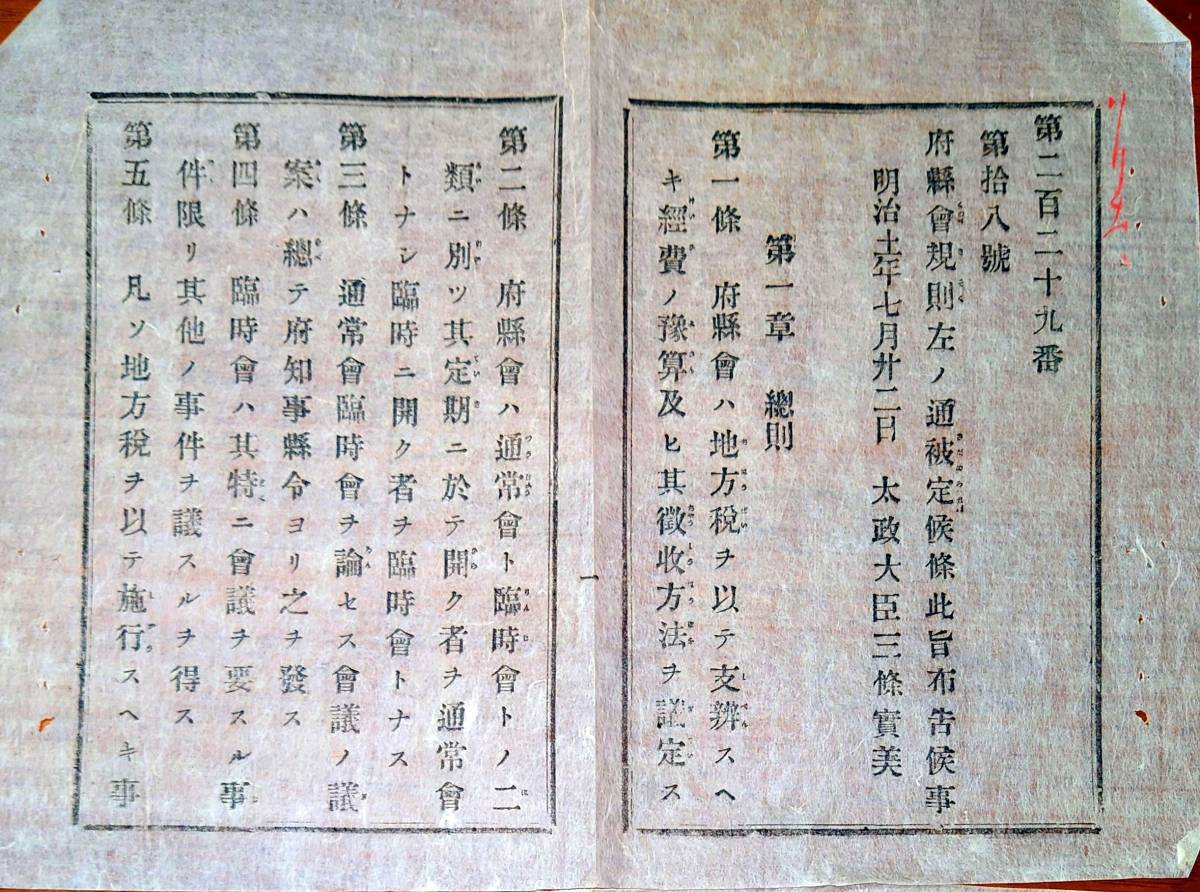 第二百二十九番
第拾八號
府縣會規則左ノ通被定候條此旨布告候事
明治十一年七月廿二日　太政大臣三條實美
第一章　總則
第一條　府縣會ハ地方税ヲ以テ支辨スヘ
キ經費ノ豫算及ヒ其徴收方法ヲ議定ス
一
第二條　府縣會ハ通常會ト臨時會トノ二
類ニ別ツ其定期ニ於テ開ク者ヲ通常會
トナシ臨時ニ開ク者ヲ臨時會トナス
第三條　通常會臨時會ヲ論セス會議ノ議
案ハ總テ府知事縣令ヨリ之ヲ發ス
第四條　臨時會ハ其特ニ會議ヲ要スル事
件限リ其他ノ事件ヲ議スルヲ得ス
第五條　凡ソ地方税ヲ以テ施行スヘキ事